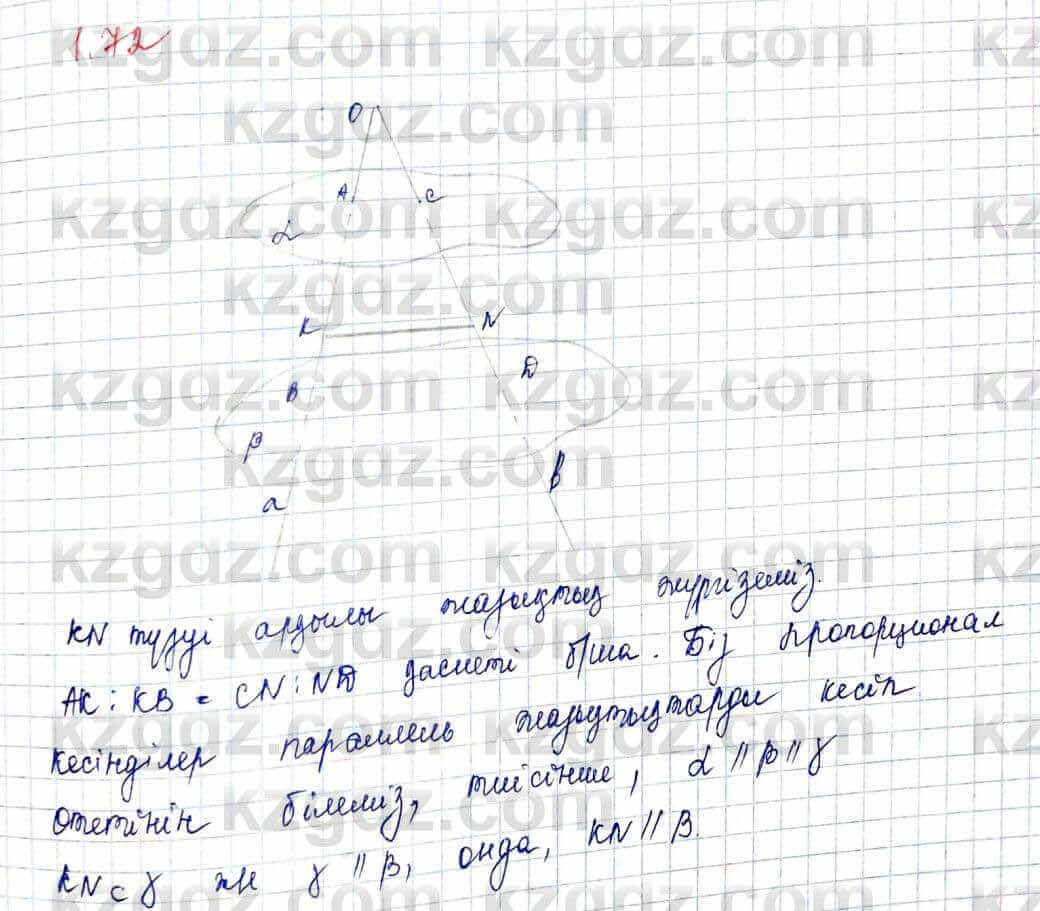 1.72
O
A C
α
K N
B D
β
a b
KN түзуі арқылы жазықтық жүргіземіз.
AK : KB = CN : ND қасиеті б/ша. Біз пропорционал
кесінділер параллель жазықтықтарды кесіп
өтетінін білеміз, тиісінше, α || β || γ
KN ⊂ γ және γ || β, онда, KN || β.
kzgdz.com